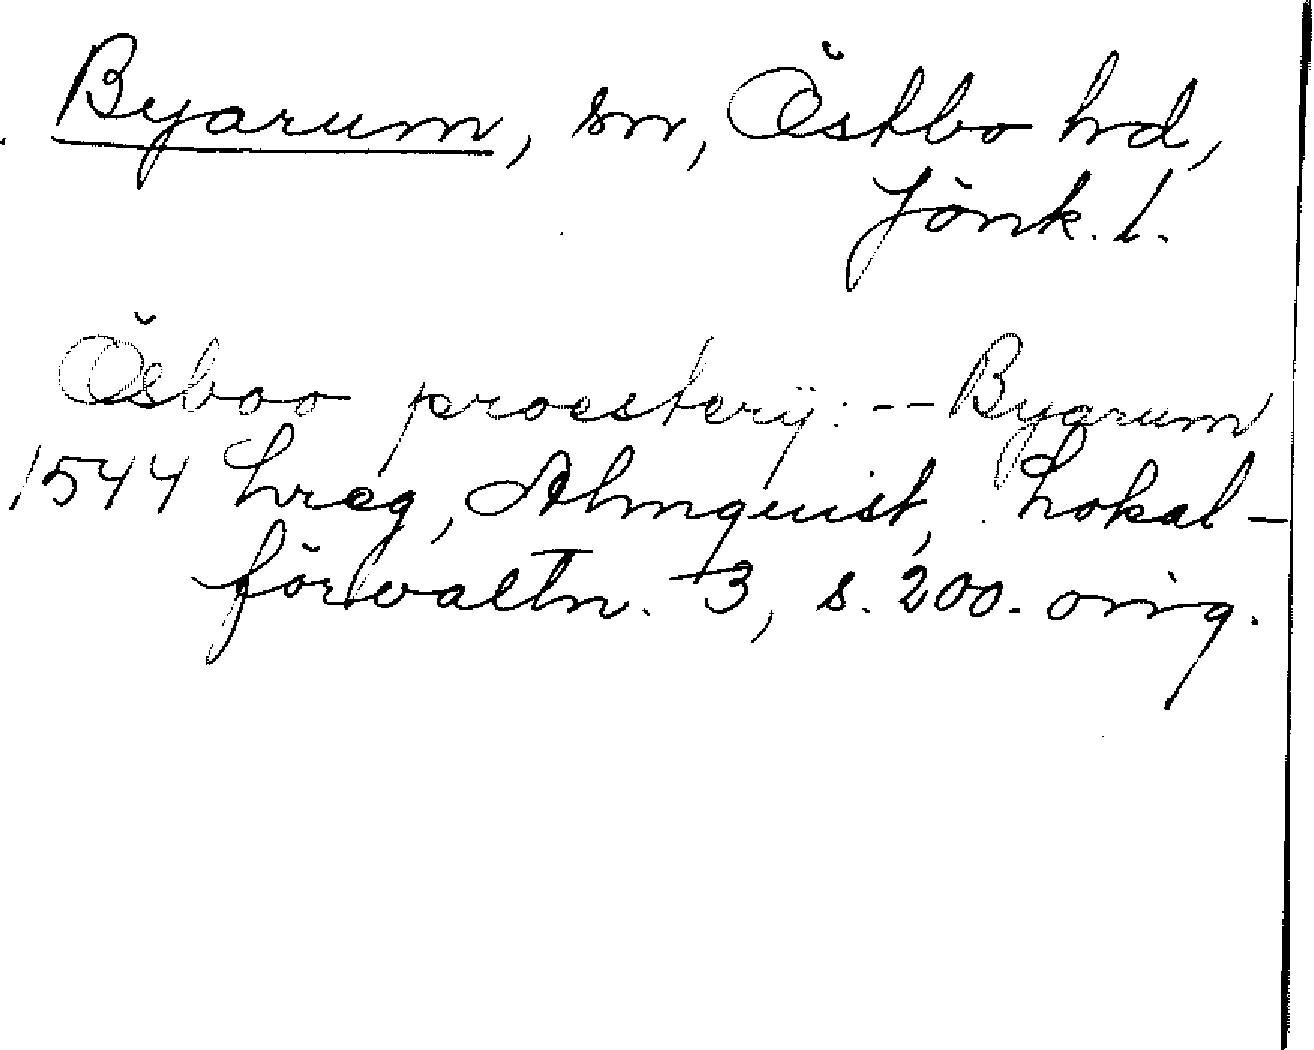 Byarum, sn, Östbo hd,
Jönk. l.
Ösboo proesterij: -- Byarum
1544 Lreg, Almquist, Lokal-
förvaltn. 3, s. 200. orig.